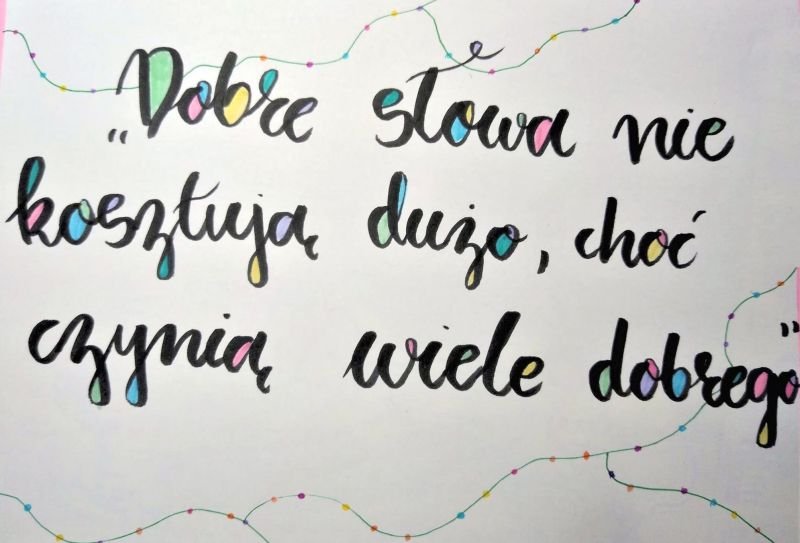 „Dobre słowa nie
kosztują dużo, choć
czynią wiele dobrego”